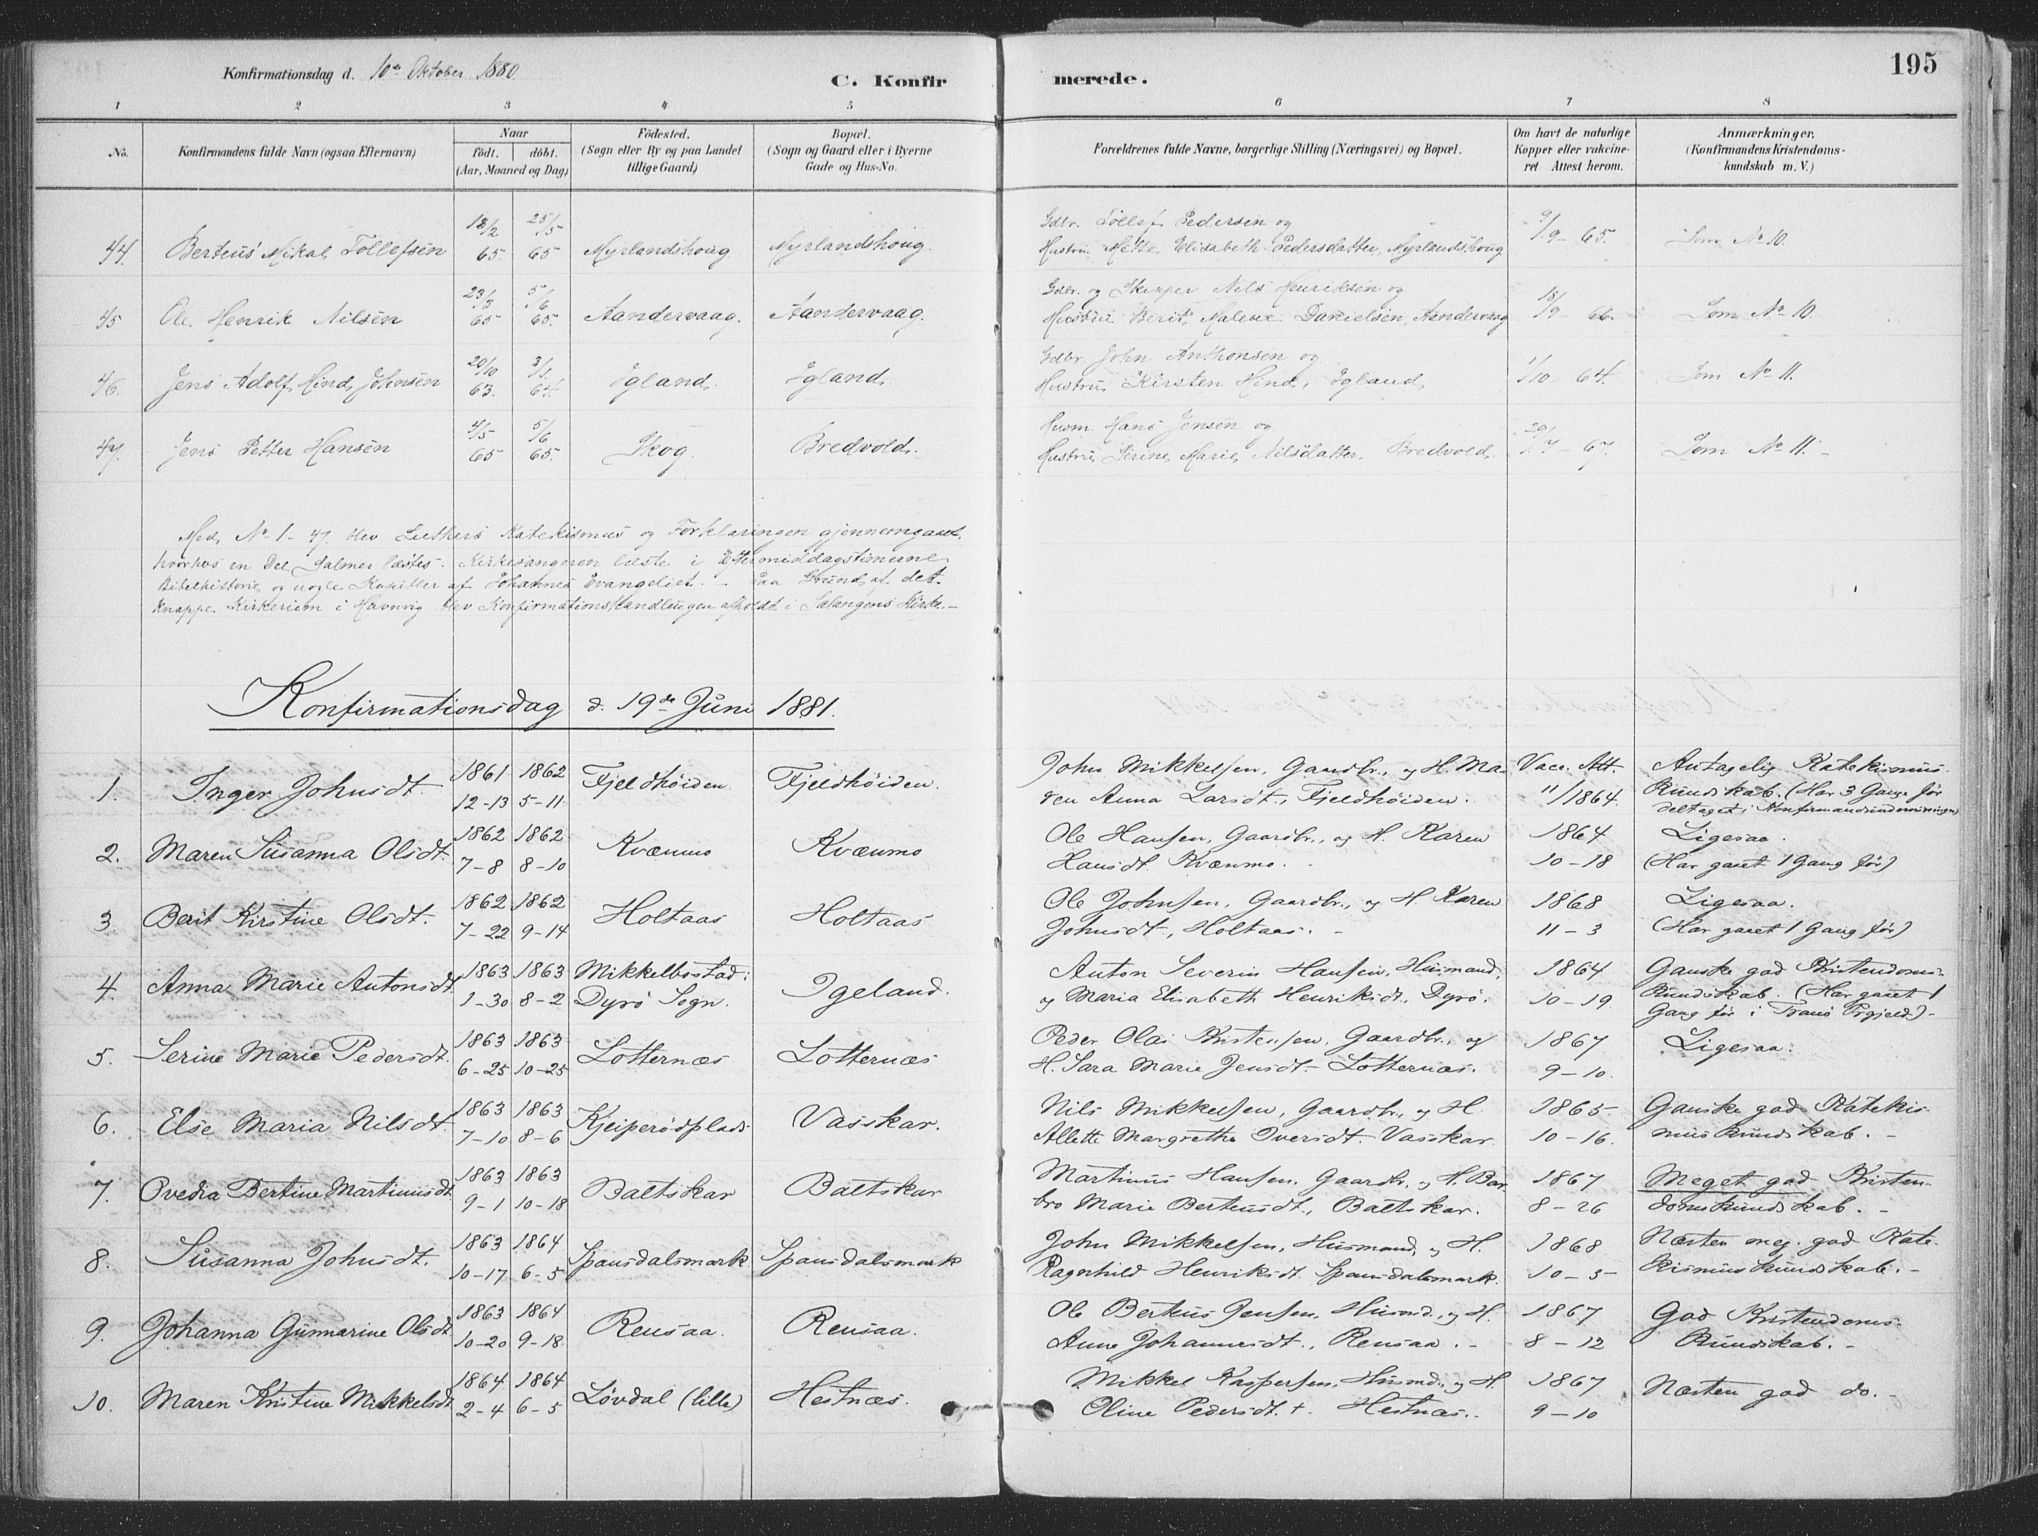 Konfirmationsdag d. 10de Oktober 1880
C. Konfir merede. 195
1 2 3 4 5 6 7 8
No. Konfirmandens fulde Navn (ogsaa Efternavn) Naar födt. döbt. (Aar, Moaned og Dag) Födested. (Sogn eller By og paa Landet tillige Gaard) Bopæl. (Sogn og Gaard eller i Byerne Gade og Hus-No. Forældrenes fulde Navne, borgerlige Stilling (Næringsvei) og Bopæl. Om havt de naturlige Kopper eller vakcineret Attest herom. Anmærkninger. (Konfirmandens Kristendomskundskab m. V.)
44. Berteus Mikal Tollefsen 18/2 65. 25/5 65 Myrlandshoug Myrlandshoug. Gdbr. Tollef Pedersen og
Hustru Mette Elisabeth Pedersdatter, Myrlandshoug 9/9 - 65. Som No 10.
45 Ole Henrik Nilsen 23/3 65 5/6 65. Aandervaag. Aandervaag. Gdbr. og Skipper Nils Henriksen og
Hustru Berit Malene Danielsen, Aandervaag 18/9 66. Som No 10.
46. Jens Adolf Hind Johnsen 20/10 63. 3/1 64. Igland. Igland. Gdbr. John Anthonsen og
Hustru Kirsten Hind, Igland. 1/10 - 64. Som No 11.
47. Jens Petter Hansen 4/5 65 5/6 65. Skog. Bredvold. Husm. Hans Jensen og
Hustru Serine Marie Nilsdatter, Bredvold. 20/7 - 67. Som No 11. -
Med No 1 - 47 blev Luthers Katekismus og Forklaringen gjennemgaaet,
hvorhos en Del Salmer læstes. Kirkesangeren læste i Eftermiddagstimerne
Bibelhistorie og nogle Kapitler af Johannes Evangeliet. - Paa Grund af det
knappe Kirkerum i Havnvig blev Konfirmationshandlingen afholdt i Salangens Kirke. -
Konfirmationsdag d. 19de Juni 1881.
1. Inger Johnsdt. 1861 12-13 1862 5-11 Fjeldhöiden. Fjeldhöiden. John Mikkelsen, Gaardbr., og H. Ma-
ren Anna Larsdt, Fjeldhöiden. Vacc. Att. 11/1864. Antagelig Katekismus-
Kundskab. (Har 3 Gange før
deltaget i Konfirmandundervisningen)
2. Maren Susanna Olsdt. 1862 7-8 1862 8-10 Kvænmo Kvænmo Ole Hansen, Gaardbr., og H. Karen
Hansdt. Kvænmo. - 1864 10-18 Ligesaa.
(Har gaaet 1 Gang før)
3 Berit Kirstine Olsdt. 1862 7-22 1862 9-14 Holtaas Holtaas Ole Johnsen, Gaardbr., og H Karen
Johnsdt, Holtaas. - 1868 11-3 Ligesaa.
(Har gaaet 1 Gang før)
4. Anna Marie Antonsdt. 1863 1-30 1863 8-2 Mikkelbostad i
Dyrö Sogn. Igeland. Anton Severin Hansen, Husmand,
og Maria Elisabeth Henriksdt. Dyrö. 1864 10-19 Ganske god Kristendoms-
Kundskab. (Har gaaet 1
Gang før i Tranö Prgjeld). -
5. Serine Marie Pedersdt. 1863 6-25 1863 10-25 Lotternæs Lotternæs Peder Olai Kristensen, Gaardbr., og
H. Sara Marie Jensdt - Lotternæs. 1867 9-10. Ligesaa.
6. Else Maria Nilsdt. 1863 7-10 1863 8-6 Kjeiperödplads Vasskar. Nils Mikkelsen, Gaardbr., og H.
Allette Margrethe Iversdt. Vasskar. 1865 10-16. Ganske god Katekis-
muskundskab. -
7. Ovedia Bertine Martinusdt 1863 9-1 1863 10-18 Baltskar Baltskar Martinus Hansen, Gaardbr. og H. Bar-
bro Marie Berteusdt., Baltskar. 1867 8-26 Meget god Kristen-
domskundskab. -
8. Susanna Johnsdt. 1863 10-17 1864 6-5 Spansdalsmark Spansdalsmark John Mikkelsen, Husmand, og H.
Ragnhild Henriksdt. Spansdalsmark. 1868 10-5 Næsten meg. god Kate-
kismuskundskab. -
9. Johanna Gunnarine Olsdt. 1863 10-20 1864 9-18 Rensaa. Rensaa. Ole Berteus Jensen, Husmd., og H.
Anne Johannesdt., Rensaa. - 1867 8-12 God Kristendoms-
Kundskab. -
10. Maren Kristine Mikkelsdt. 1864 2-4 1864 6-5 Lövdal (lille) Hestnæs. Mikkel Kaspersen, Husmd., og H.
Oline Pedersdt. +. Hestnæs. 1867 9-10 Næsten god do. -